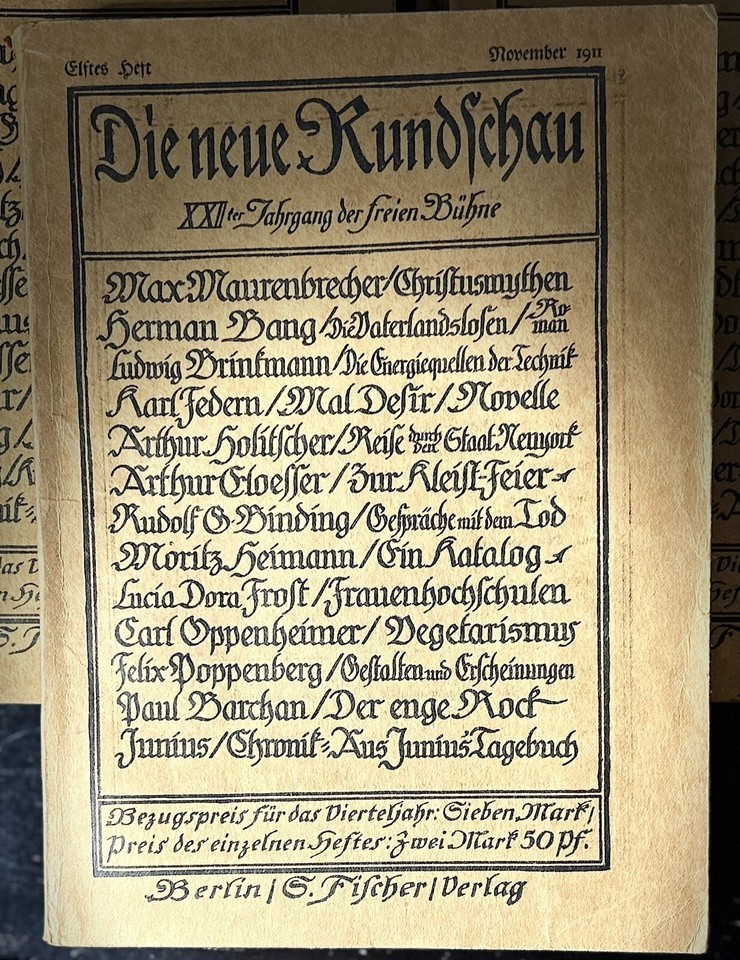 Elftes Heft
November 1911
Die neue Rundschau
XXIIter Jahrgang der freien Bühne
Max Maurenbrecher/Christusmythen
Herman Bang/Die Vaterlandslosen/Roman
Ludwig Brinkmann/Die Energiequellen der Technik
Karl Federn/Mal Desir/Novelle
Arthur Holitscher/Reise durch den Staat Neuyork
Arthur Eloesser/Zur Kleist-Feier
Rudolf G. Binding/Gespräche mit dem Tod
Moritz Heimann/Ein Katalog
Lucia Dora Frost/Frauenhochschulen
Carl Oppenheimer/Vegetarismus
Felix Poppenberg/Gestalten und Erscheinungen
Paul Barchan/Der enge Rock
Junius/Chronik-Aus Junius' Tagebuch
Bezugspreis für das Vierteljahr: Sieben Mark/
Preis des einzelnen Heftes: Zwei Mark 50 Pf.
Berlin/S. Fischer/Verlag